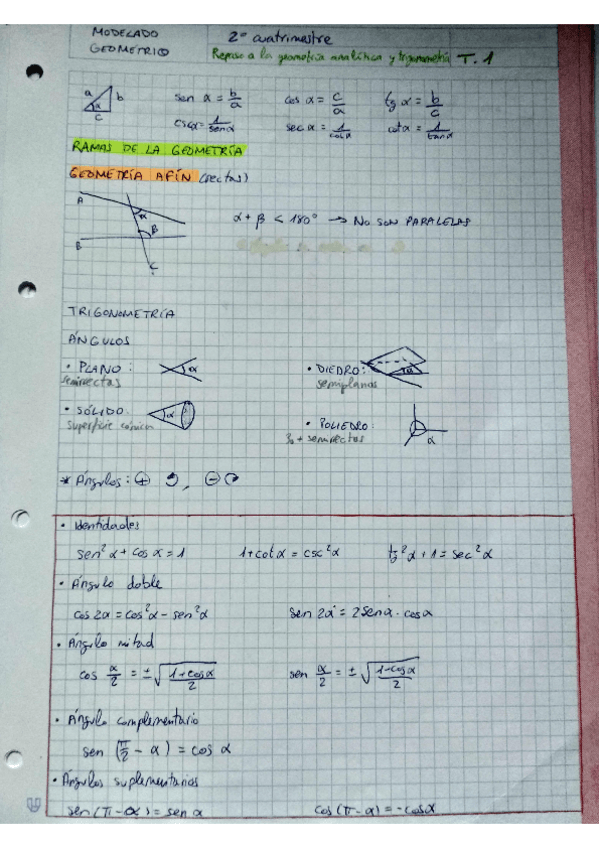 MODELADO GEOMÉTRICO
2º cuatrimestre
Repaso a la geometría analítica y trigonometría T. 1
a b α c
sen α = b/a cos α = c/a tg α = b/c
cscα = 1/senα sec α = 1/cosα cotα = 1/tanα
RAMAS DE LA GEOMETRÍA
GEOMETRÍA AFÍN (rectas)
A α β B C
α + β < 180° → NO SON PARALELAS
TRIGONOMETRÍA
ÁNGULOS
• PLANO: α
semirrectas
• DIEDRO: α
semiplanos
• SÓLIDO: α
superficie cónica
• POLIEDRO: α
3 o + semirrectas
* Ángulos: + , -
• Identidades
sen²α + cos α = 1 1 + cotα = csc²α tg²α + 1 = sec²α
• Ángulo doble
cos 2α = cos²α - sen²α sen 2α = 2senα · cosα
• Ángulo mitad
cos α/2 = ± √(1+cosα/2) sen α/2 = ± √(1-cosα/2)
• Ángulo complementario
sen (π/2 - α) = cos α
• Ángulos suplementarios
sen (π - α) = sen α cos (π - α) = -cosα